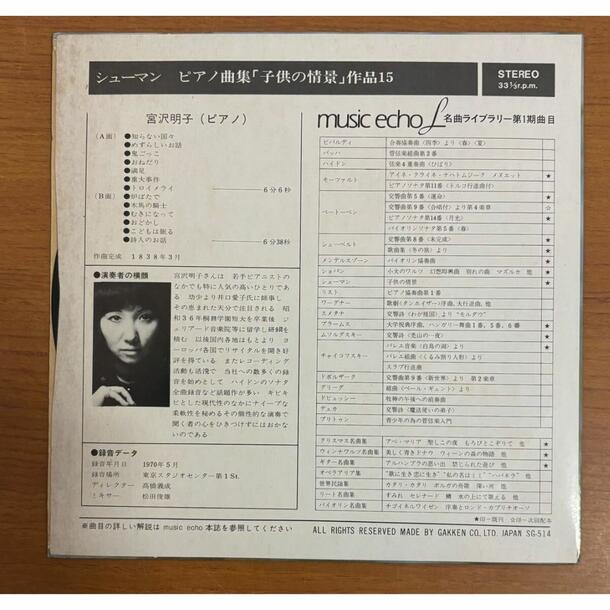 シューマン ピアノ曲集「子供の情景」作品15
STEREO
33⅓r.p.m.
宮沢明子(ピアノ)
(A面)
●知らない国々
●めずらしいお話
●鬼ごっこ
●おねだり
●満足
●重大事件
●トロイメライ 6分6秒
(B面)
●炉ばたで
●木馬の騎士
●むきになって
●おどかし
●こどもは眠る
●詩人のお話 6分38秒
作曲完成 1838年3月
●演奏者の横顔
宮沢明子さんは 若手ピアニストの
なかでも特に人気の高いひとであ
る 幼少より井口愛子氏に師事し
その恵まれた天分で注目される 昭
和36年桐朋学園短大を卒業後 ジ
ュリアード音楽院等に留学し研鑽を
積む 以後国内各地はもとより ヨ
ーロッパ各国でリサイタルを開き好
評を得ている またレコーディング
活動も活溌で 当社への数多くの録
音を始めとして ハイドンのソナタ
全曲録音など話題作が多い キビキ
ビとした現代性のなかにナイーブな
柔軟性を秘めるその個性的な演奏で
聞く者の心をひきつけずにはおかな
いのである
●録音データ
録音年月日 1970年5月
録音場所 東京スタジオセンター第1St.
ディレクター 高橋義成
ミキサー 松田俊雄
※曲目の詳しい解説は music echo 本誌を参照してください
music echo L 名曲ライブラリー第1期曲目
ビバルディ 合奏協奏曲〈四季〉より〈春〉〈夏〉
バッハ 管弦楽組曲第2番
ハイドン 弦楽4重奏曲〈ひばり〉
モーツァルト アイネ・クライネ・ナハトムジーク メヌエット ★
ピアノソナタ第11番〈トルコ行進曲付〉
ベートーベン 交響曲第5番〈運命〉 ★
交響曲第9番〈合唱付〉より第4楽章 ☆
ピアノソナタ第14番〈月光〉 ★
バイオリンソナタ第5番〈春〉
シューベルト 交響曲第8番〈未完成〉 ★
歌曲集〈冬の旅〉より
メンデルスゾーン バイオリン協奏曲 ★
ショパン 小犬のワルツ 幻想即興曲 別れの曲 マズルカ 他 ★
シューマン 子供の情景 ★
リスト ピアノ協奏曲第1番
ワーグナー 歌劇〈タンホイザー〉序曲、大行進曲、他
スメタナ 交響詩〈わが祖国〉より“モルダウ” ★
ブラームス 大学祝典序曲、ハンガリー舞曲1番、5番、6番 ★
ムソルグスキー 交響詩〈禿山の一夜〉
チャイコフスキー バレエ音楽〈白鳥の湖〉より ★
バレエ組曲〈くるみ割り人形〉より
スラブ行進曲
ドボルザーク 交響曲第9番〈新世界〉より 第2楽章
グリーグ 組曲〈ペール・ギュント〉より
ドビュッシー 牧神の午後への前奏曲
デュカ 交響詩〈魔法使いの弟子〉
ブリトゥン 青少年の為の管弦楽入門
クリスマス名曲集 アベ・マリア 聖しこの夜 もろびとこぞりて 他 ★
ウィンナワルツ名曲集 美しく青きドナウ ウィーンの森の物語 他 ★
ギター名曲集 アルハンブラの思い出 禁じられた遊び 他 ★
オペラアリア集 “歌に生き恋に生き” “私の名は ミミ” “ハバネラ” 他
世界民謡集 カタリ・カタリ ボルガの舟歌 深い河 他
リート名曲集 すみれ セレナード 鱒 水の上にて歌える 他
バイオリン名曲集 チゴイネルワイゼン 序奏とロンド・カプリチオーソ
★印一既刊 ☆印一次回配本
ALL RIGHTS RESERVED MADE BY GAKKEN CO., LTD. JAPAN SG-514